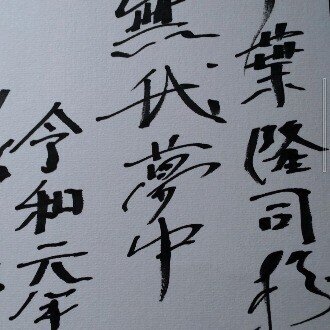 葉隆司様
無我夢中
令和元年